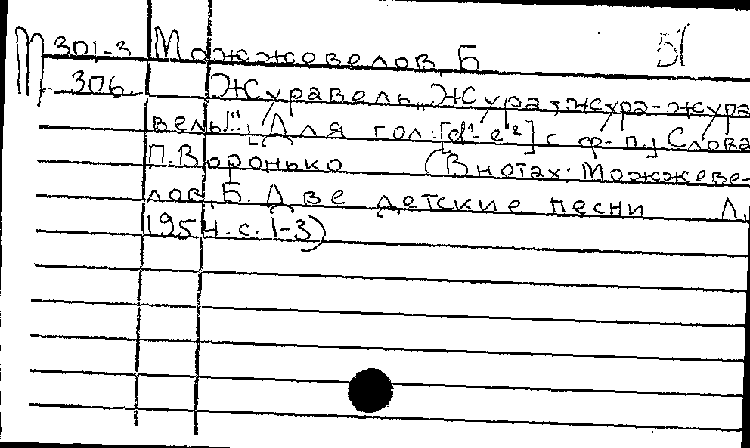 М 301-3 Можжевелов, Б 51
306 Журавель „Жура, жура-жура
вель!". [Для гол. [d¹-e²] с ф-п.] Слова
П. Воронько (В нотах: Можжеве-
лов, Б. Две детские песни Л,
1954. с. 1-3)